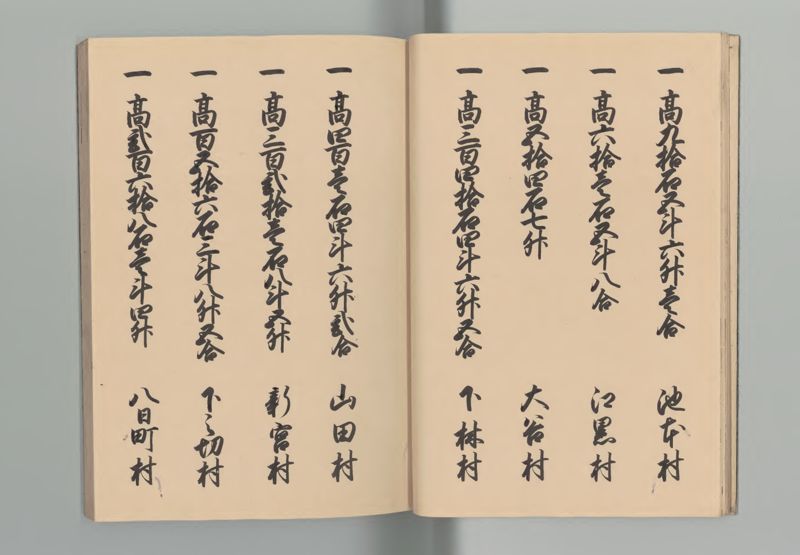 一 高九拾石五斗六升壱合 池本村
一 高六拾壱石五斗八合 江黒村
一 高五拾四石七升 大谷村
一 高三百四拾石四斗六升五合 下林村
一 高四百壱石四斗六升弐合 山田村
一 高三百弐拾壱石八斗五升 新宮村
一 高百五拾六石三斗八升五合 下之切村
一 高弐百六拾八石壱斗四升 八日町村